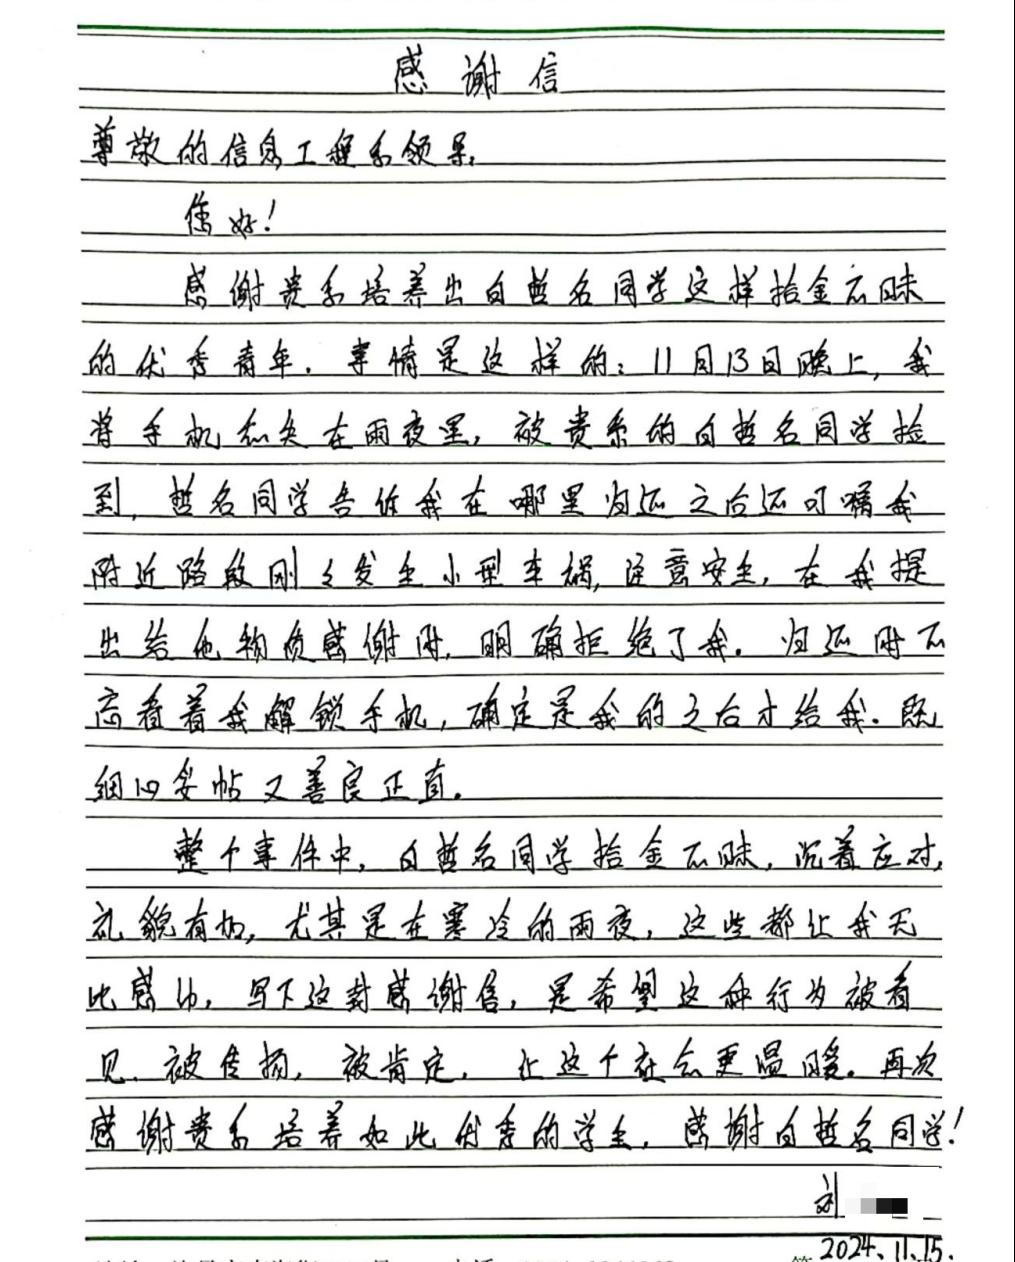 感谢信
尊敬的信息工程系领导,
您好!
感谢贵系培养出白哲名同学这样拾金不昧
的优秀青年. 事情是这样的: 11月13日晚上, 我
将手机忘失在雨夜里, 被贵系的白哲名同学捡
到, 哲名同学告诉我在哪里归还之后还叮嘱我
附近路段刚刚发生小型车祸, 注意安全. 在我提
出给他物质感谢时, 明确拒绝了我. 归还时不
忘看着我解锁手机, 确定是我的之后才给我. 既
细心妥帖又善良正直.
整个事件中, 白哲名同学拾金不昧, 沉着应对,
礼貌有加, 尤其是在寒冷的雨夜, 这些都让我无
比感动, 写下这封感谢信, 是希望这种行为被看
见. 被传扬, 被肯定, 让这个社会更温暖. 再次
感谢贵系培养如此优秀的学生, 感谢白哲名同学!
刘
2024. 11. 15.